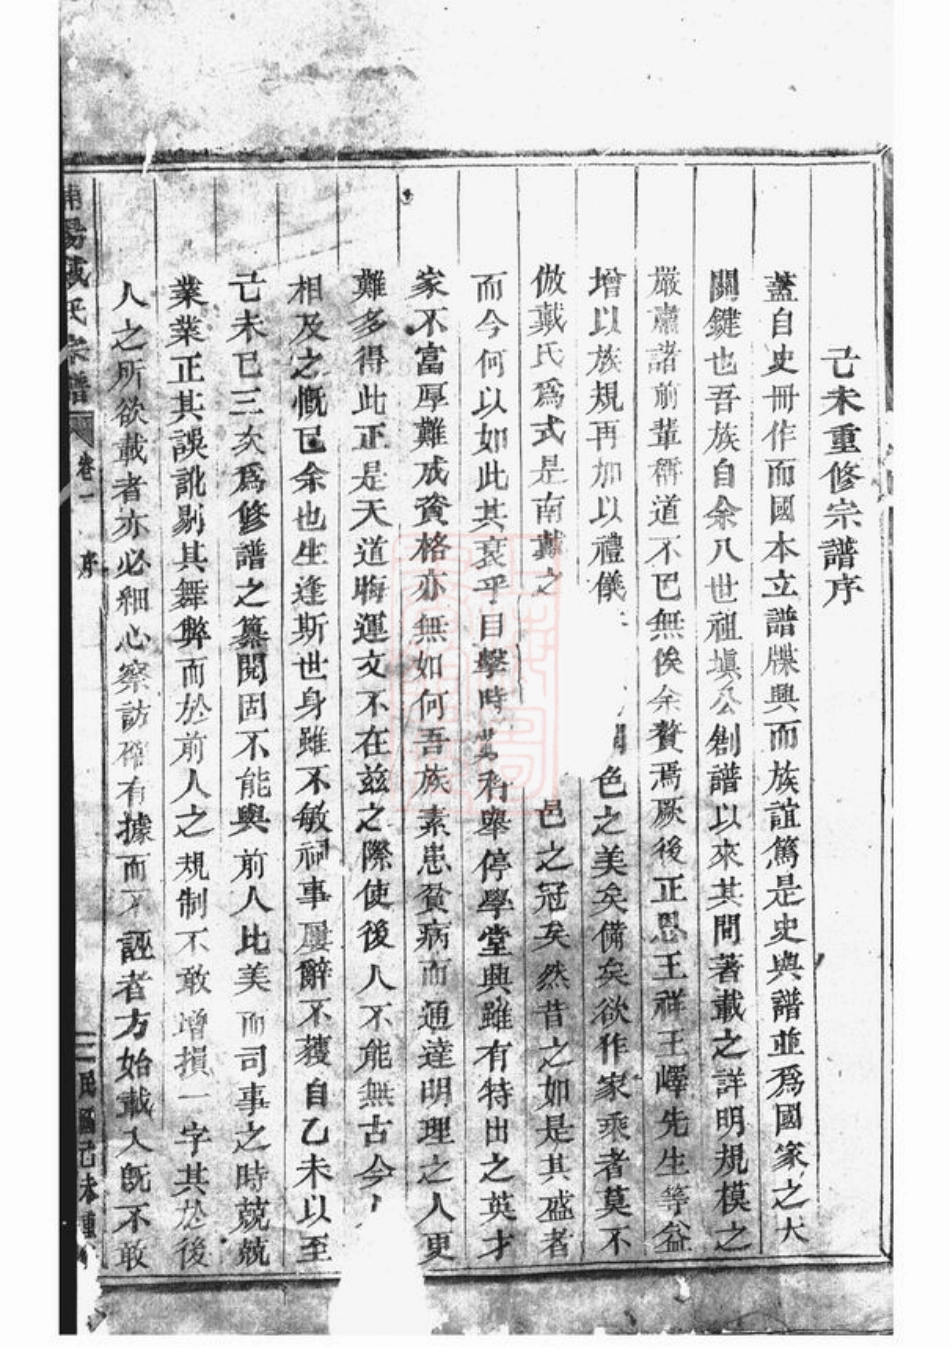 己未重修宗譜序
蓋自史冊作而國本立譜牒興而族誼篤是史與譜並爲國家之大
關鍵也吾族自余八世祖塡公創譜以來其間著載之詳明規模之
嚴肅諸前輩稱道不已無俟余贅焉厥後正思王祥王嶧先生等益
增以族規再加以禮儀 色之美矣備矣欲作家乘者莫不
倣戴氏爲式是南戴之 邑之冠矣然昔之如是其盛者
而今何以如此其衰乎目擊時 科舉停學堂興雖有特出之英才
家不富厚難成資格亦無如何吾族素患貧病而通達明理之人更
難多得此正是天道晦運文不在兹之際使後人不能無古今
相及之慨已余也生逢斯世身雖不敏祠事屢辭不獲自乙未以至
己未已三次爲修譜之纂閱固不能與前人比美而司事之時兢兢
業業正其誤訛剔其舞弊而於前人之規制不敢增損一字其於後
人之所欲載者亦必細心察訪確有據而不誣者方始載入旣不敢
南陽戴氏宗譜 卷一 序 二 民國己未重